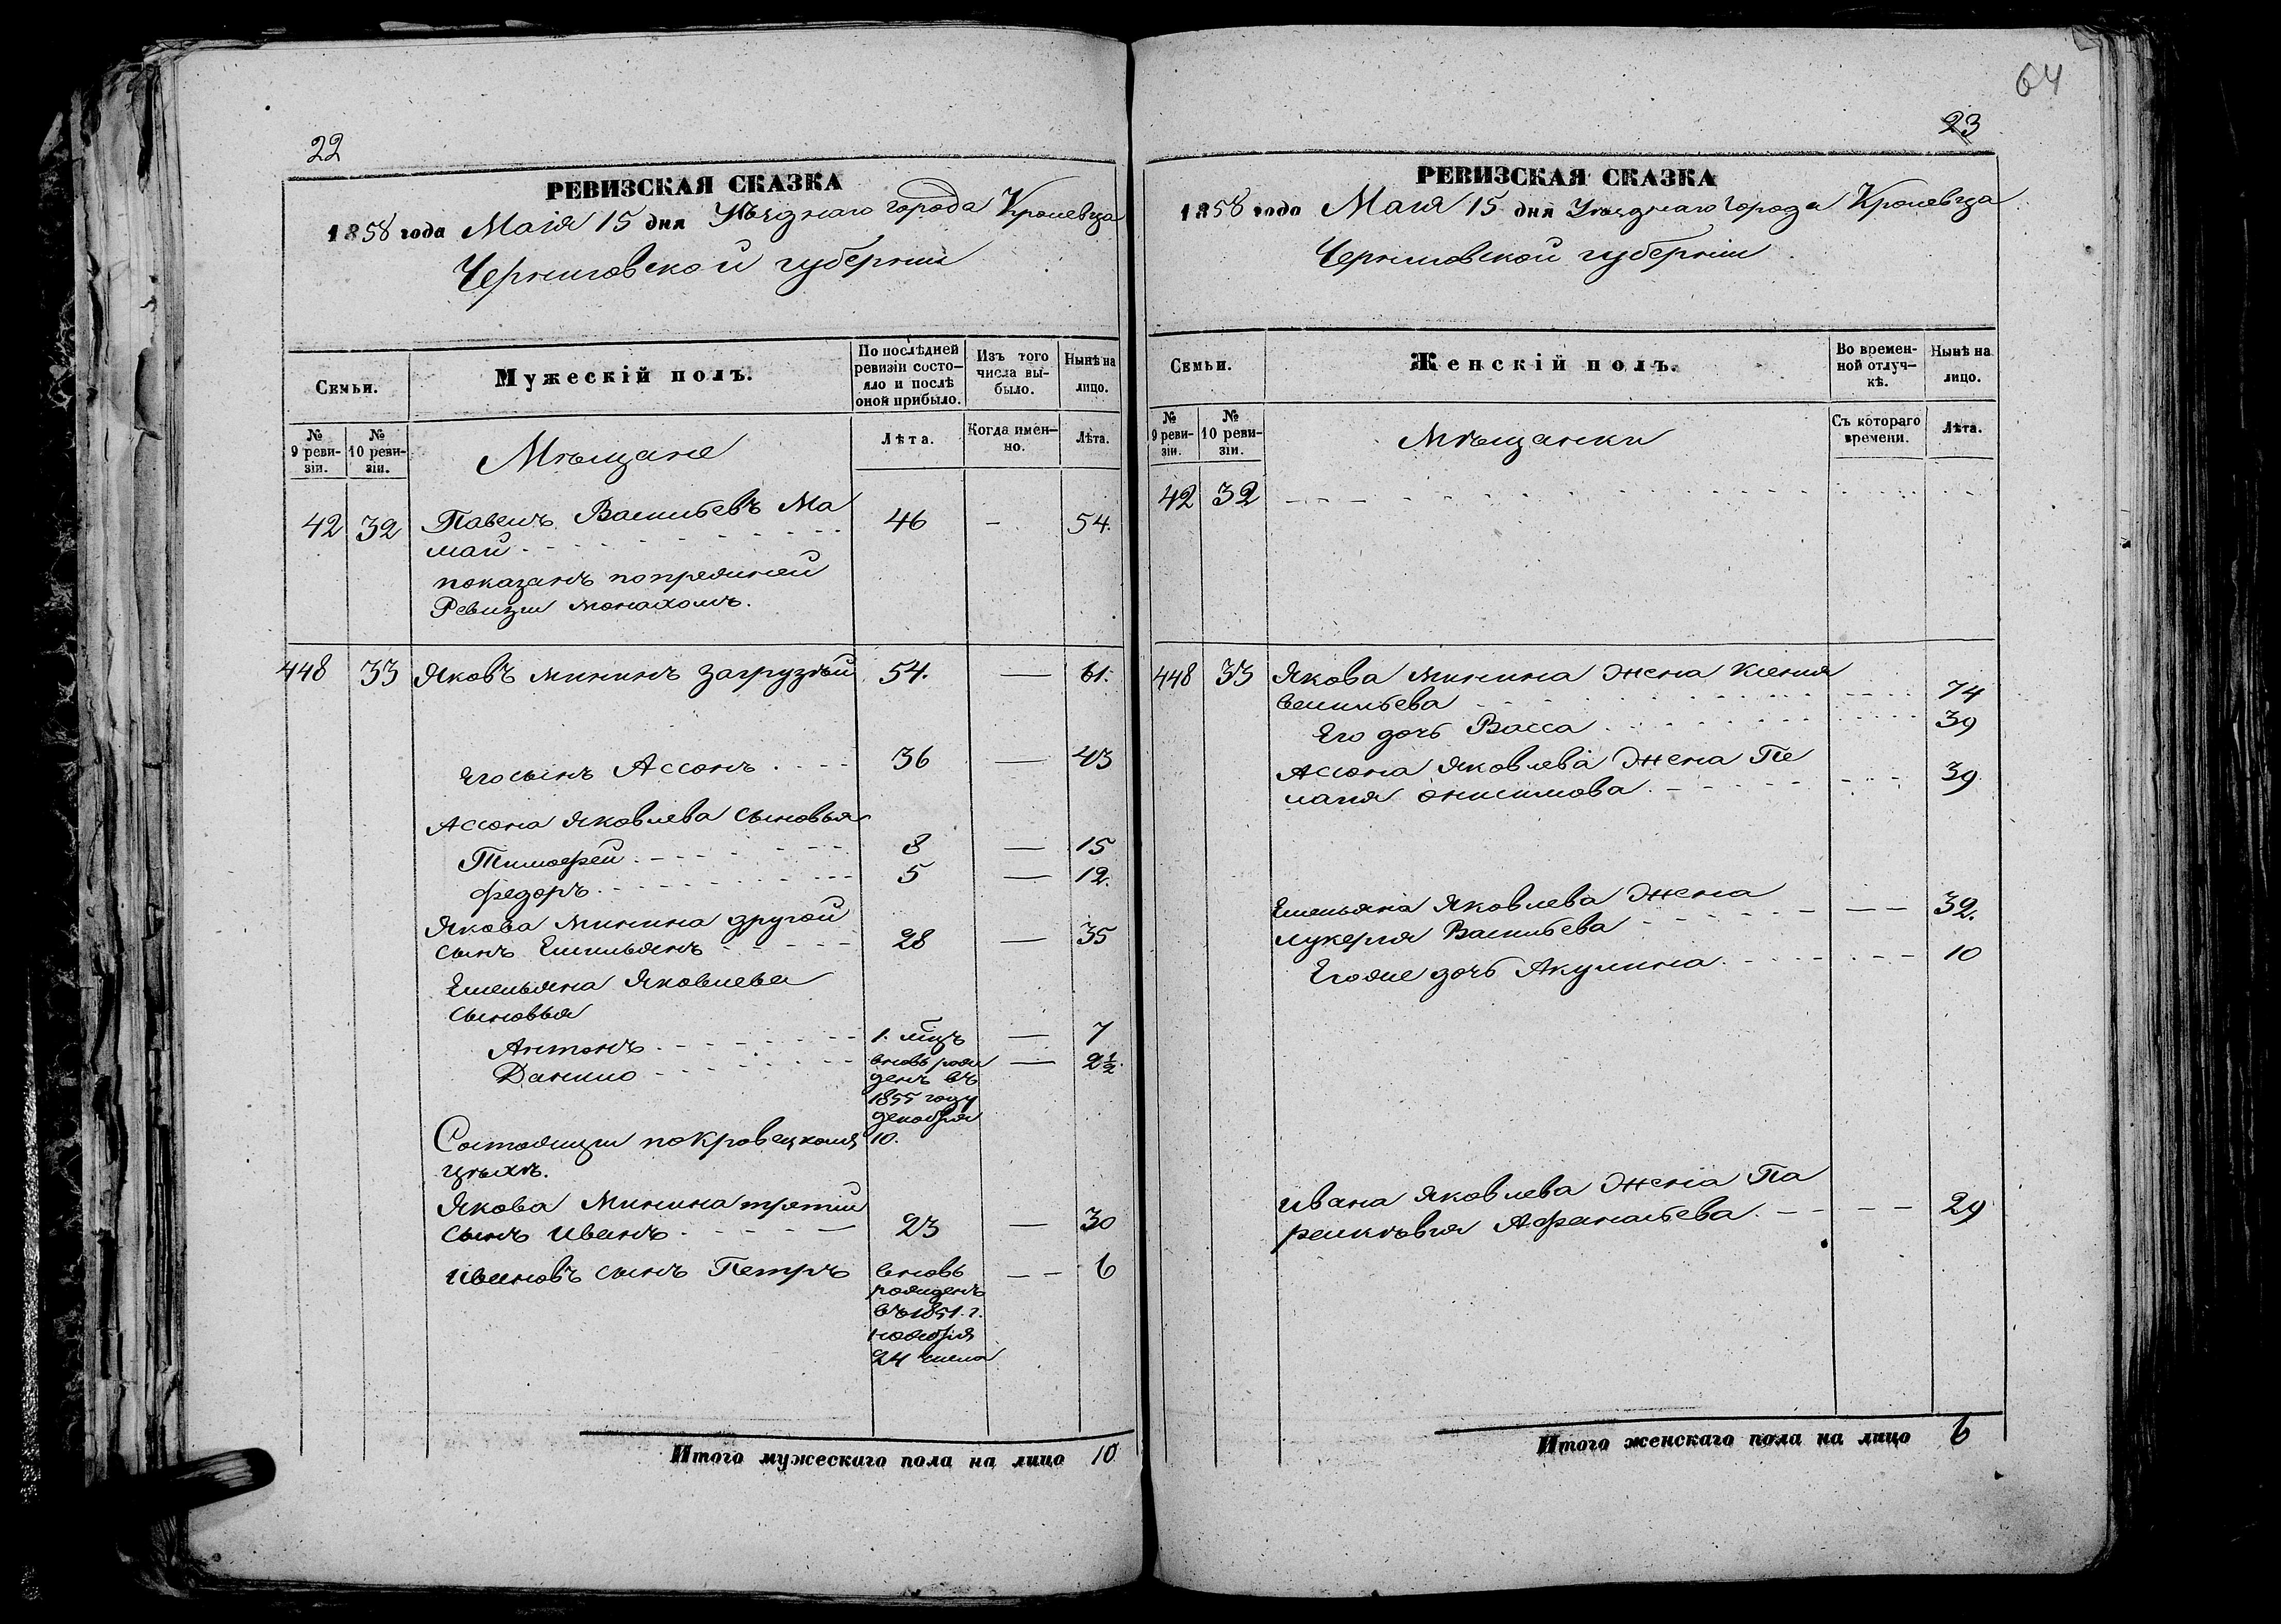 22
РЕВИЗСКАЯ СКАЗКА
1858 года Маія 15 дня Уѣзднаго города Кролевца
Черниговской губерніи
Семьи.
Мужескій полъ.
По послѣдней ревизіи состояло и послѣ оной прибыло.
Изъ того числа выбыло.
Нынѣ на лицо.
№ 9 ревизіи.
№ 10 ревизіи.
Мѣщане
Лѣта.
Когда именно.
Лѣта.
42 32 Павелъ Васильевъ Ма 46 - 54.
май
показанъ попрежней
Ревизіи монахомъ.
448 33 Яковъ Мининъ Загрузкый 54. — 61.
Его сынъ Ассонъ 36 — 43
Ассона Яковлева сыновья
Тимофей 8 — 15
Федоръ 5 — 12.
Якова Минина другой
сынъ Емельянъ 28 — 35
Емельяна Яковлева
сыновья
Антонъ 1. мцъ — 7
Данило вновь рож — 2½
денъ въ
1855 году
декабря
Состоящіи по 10.
цѣхъ.
Якова Минина третій
сынъ Иванъ 23 — 30
Ивановъ сынъ Петръ вновь — 6
рожденъ
въ 1851. г.
ноября
24 числа
Итого мужескаго пола на лицо 10
64
23
РЕВИЗСКАЯ СКАЗКА
1858 года Маія 15 дня Уѣзднаго города Кролевца
Черниговской губерніи
Семьи.
Женскій полъ.
Во временной отлучкѣ.
Нынѣ на лицо.
№ 9 ревизіи.
№ 10 ревизіи.
Мѣщанки
Съ котораго времени.
Лѣта.
42 32
448 33 Якова Минина жена Ксенія
Васильева 74
Его дочь Васса 39
Ассона Яковлева жена Пе
лагія Онисимова 39
Емельяна Яковлева жена
Лукерія Васильева 32.
Егоже дочь Акулина 10
Ивана Яковлева жена Па
раскѣвія Афанасьева 29
Итого женскаго пола на лицо 6